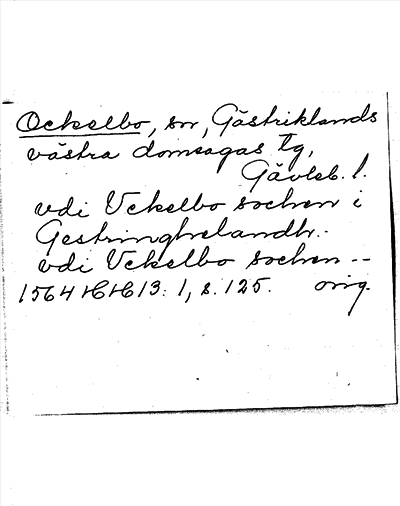 Ockelbo, sn, Gästriklands
västra domsagas tg,
Gävleb. l.
vdi Vckelbo sochen i
Gestringhelandh.
vdi Vckelbo sochen --
1564 HH 13:1, s. 125. orig.